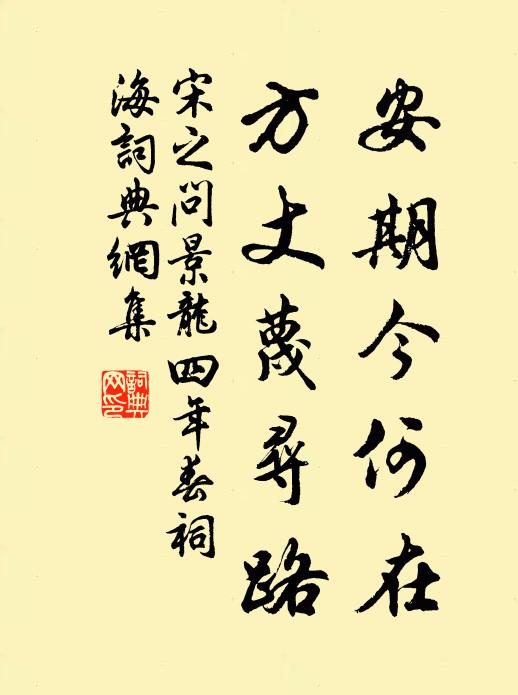 安期今何在
方丈蔑尋路
宋之问景龍四年春祠
海詞典網集
詞典
网印